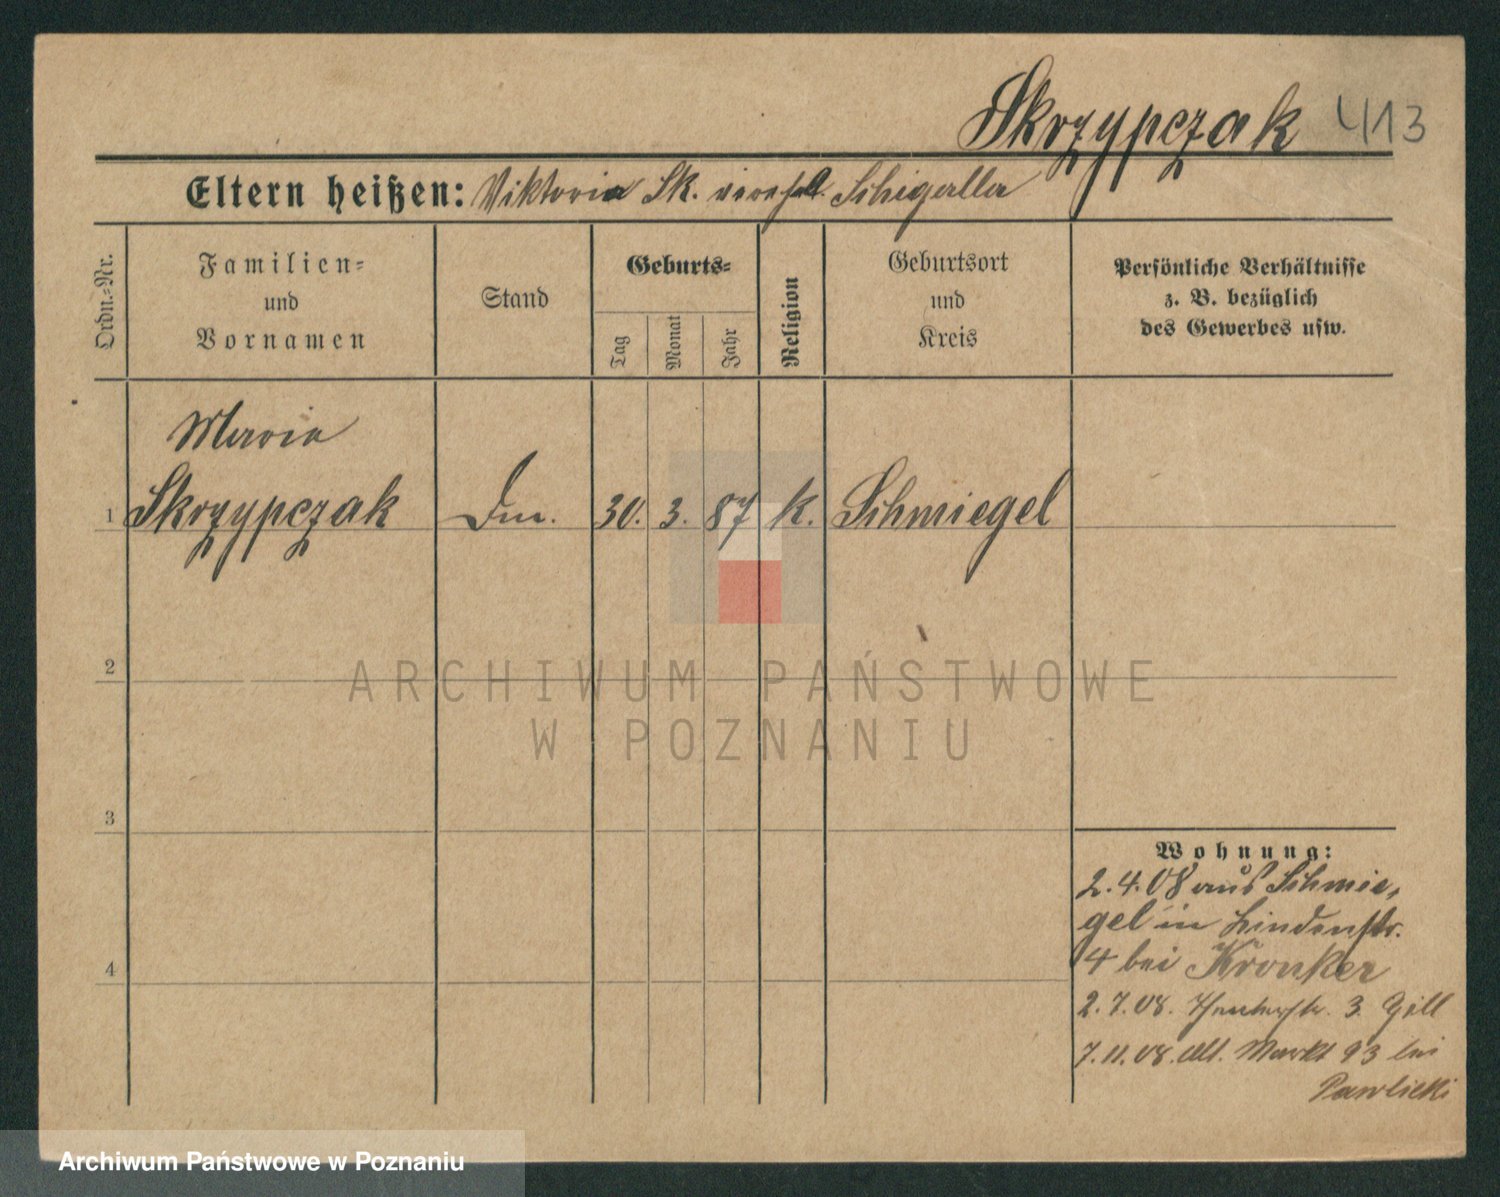 Skrzypczak 413
Eltern heißen: Viktoria Sk. verehel. Schigalla
Ordn.-Nr.
Familien-
und
Vornamen
Stand
Geburts-
Tag
Monat
Jahr
Religion
Geburtsort
und
Kreis
Persönliche Verhältnisse
z. B. bezüglich
des Gewerbes usw.
Maria
1 Skrzypczak Dm. 30. 3. 87 k. Schmiegel
2
3
4
ARCHIWUM PAŃSTWOWE
W POZNANIU
Wohnung:
2.4.08 aus Schmie-
gel in Lindenstr.
4 bei Kronker
2.7.08. 3. Gill
7.11.08. Alt. Markt 93 bei
Pawlicki
Archiwum Państwowe w Poznaniu